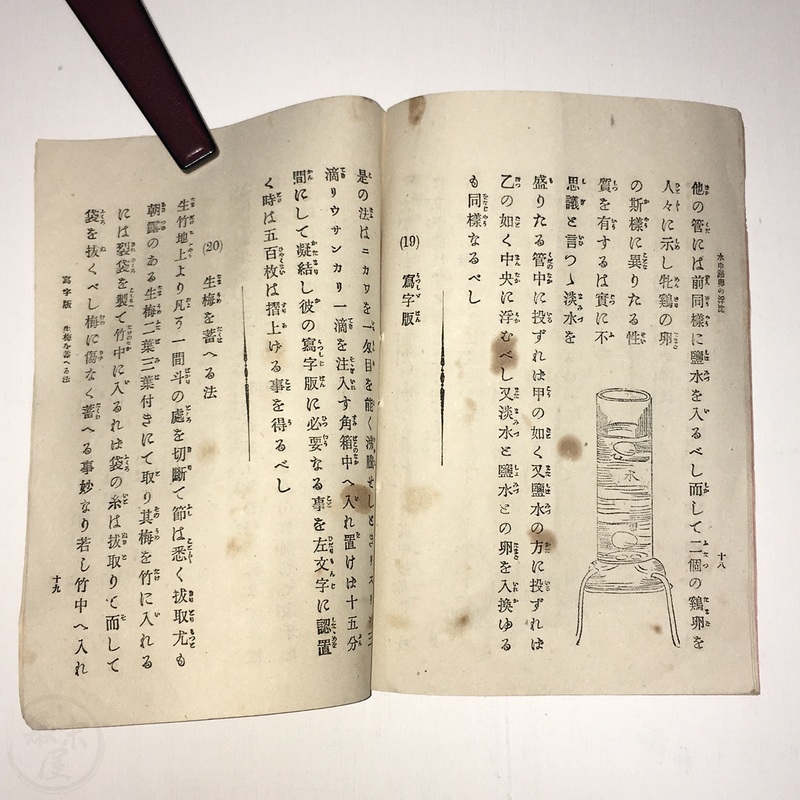 十八
他の管には前同樣に鹽水を入るべし而して二個の鷄卵を
人々に示し牝鷄の卵
の斯樣に異りたる性
質を有するは實に不
思議と言つゝ淡水を
盛りたる管中に投ずれは甲の如く又鹽水の方に投ずれは
乙の如く中央に浮むべし又淡水と鹽水との卵を入換ゆる
も同樣なるべし
水
(19) 寫字版
是の法はニカワを
滴リウサンカリ一滴を注入す角箱中へ入れ置けは十五分
間にして凝結し彼の寫字版に必要なる事を左文字に認置
く時は五百枚は摺上げる事を得るべし
(20) 生梅を蓄へる法
生竹地上より凡そ一間斗の處を切斷て節は悉く拔取尤も
朝露のある生梅二葉三葉付きにて取り其梅を竹に入れる
には裂袋を製て竹中に入るれは袋の糸は拔取りて而して
袋を拔くべし梅に傷なく蓄へる事妙なり若し竹中へ入れ
寫字版 生梅を蓄へる法
十九